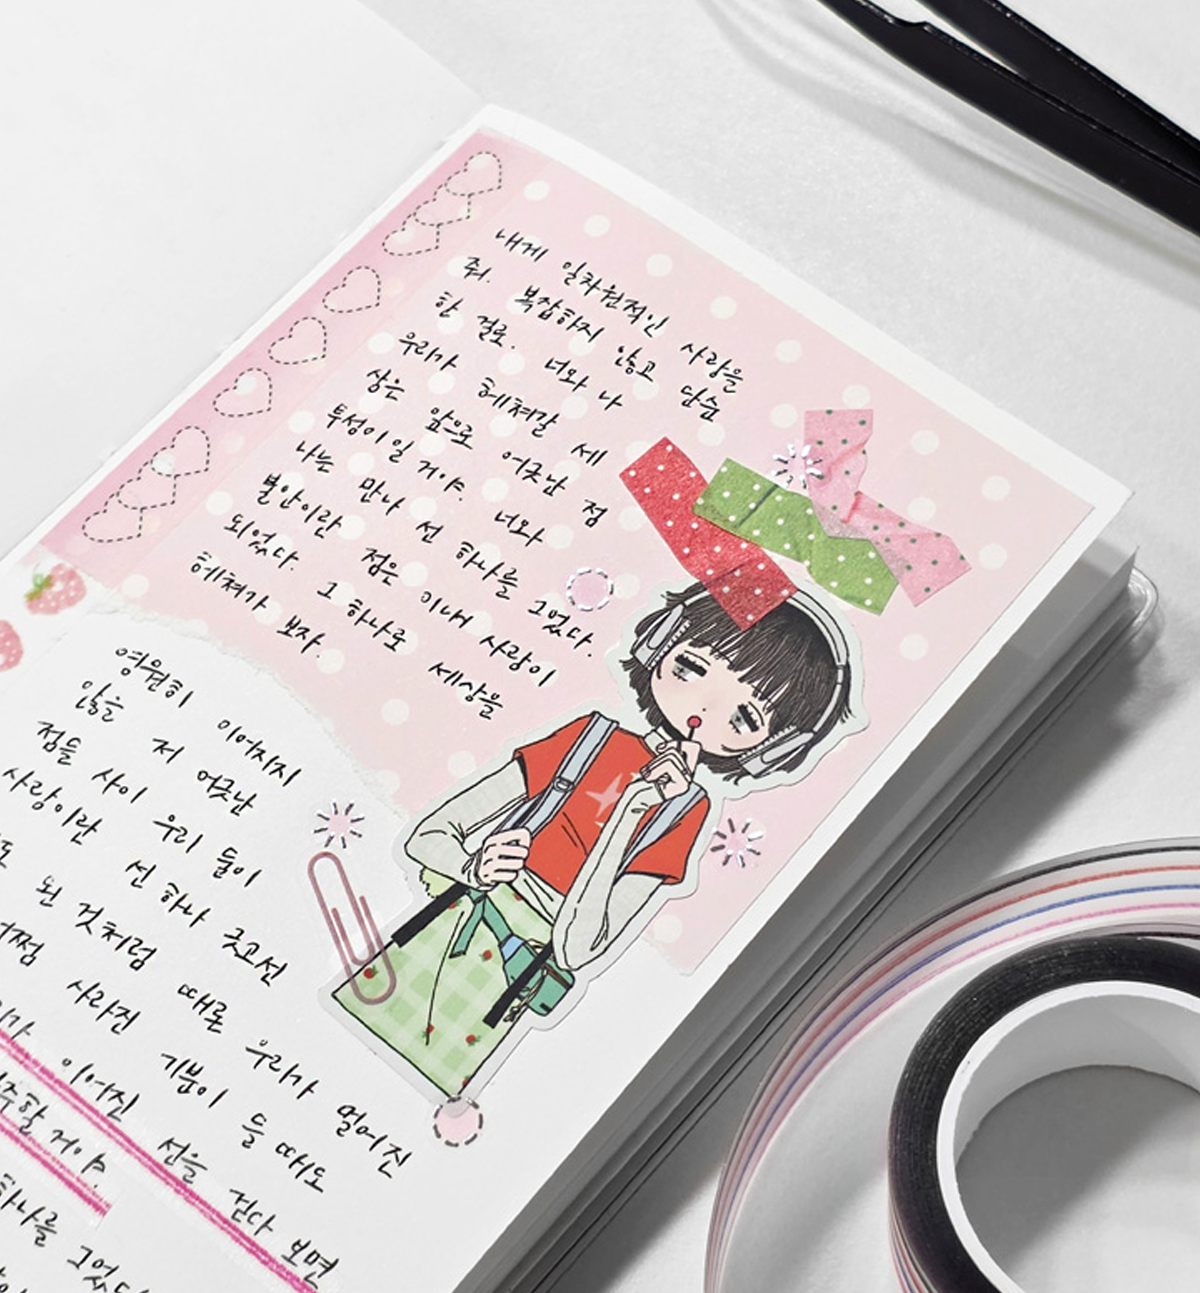 내게 일차원적인 사랑을
줘. 복잡하지 않고 단순
한 걸로. 너와 나
우리가 헤쳐갈 세
상은 앞으로 어긋난 점
투성이일 거야. 너와
나는 만나 선 하나를 그었다.
불안이란 점은 이내 사랑이
되었다. 그 하나로 세상을
헤쳐가 보자.
영원히 이어지지
않을 저 어긋난
점들 사이 우리 둘이
사랑이란 선 하나 긋고선
된 것처럼 때론 우리가 멀어진
사라진 기분이 들 때도
이어진 선을 걷다 보면
거야.
하나를 그었다